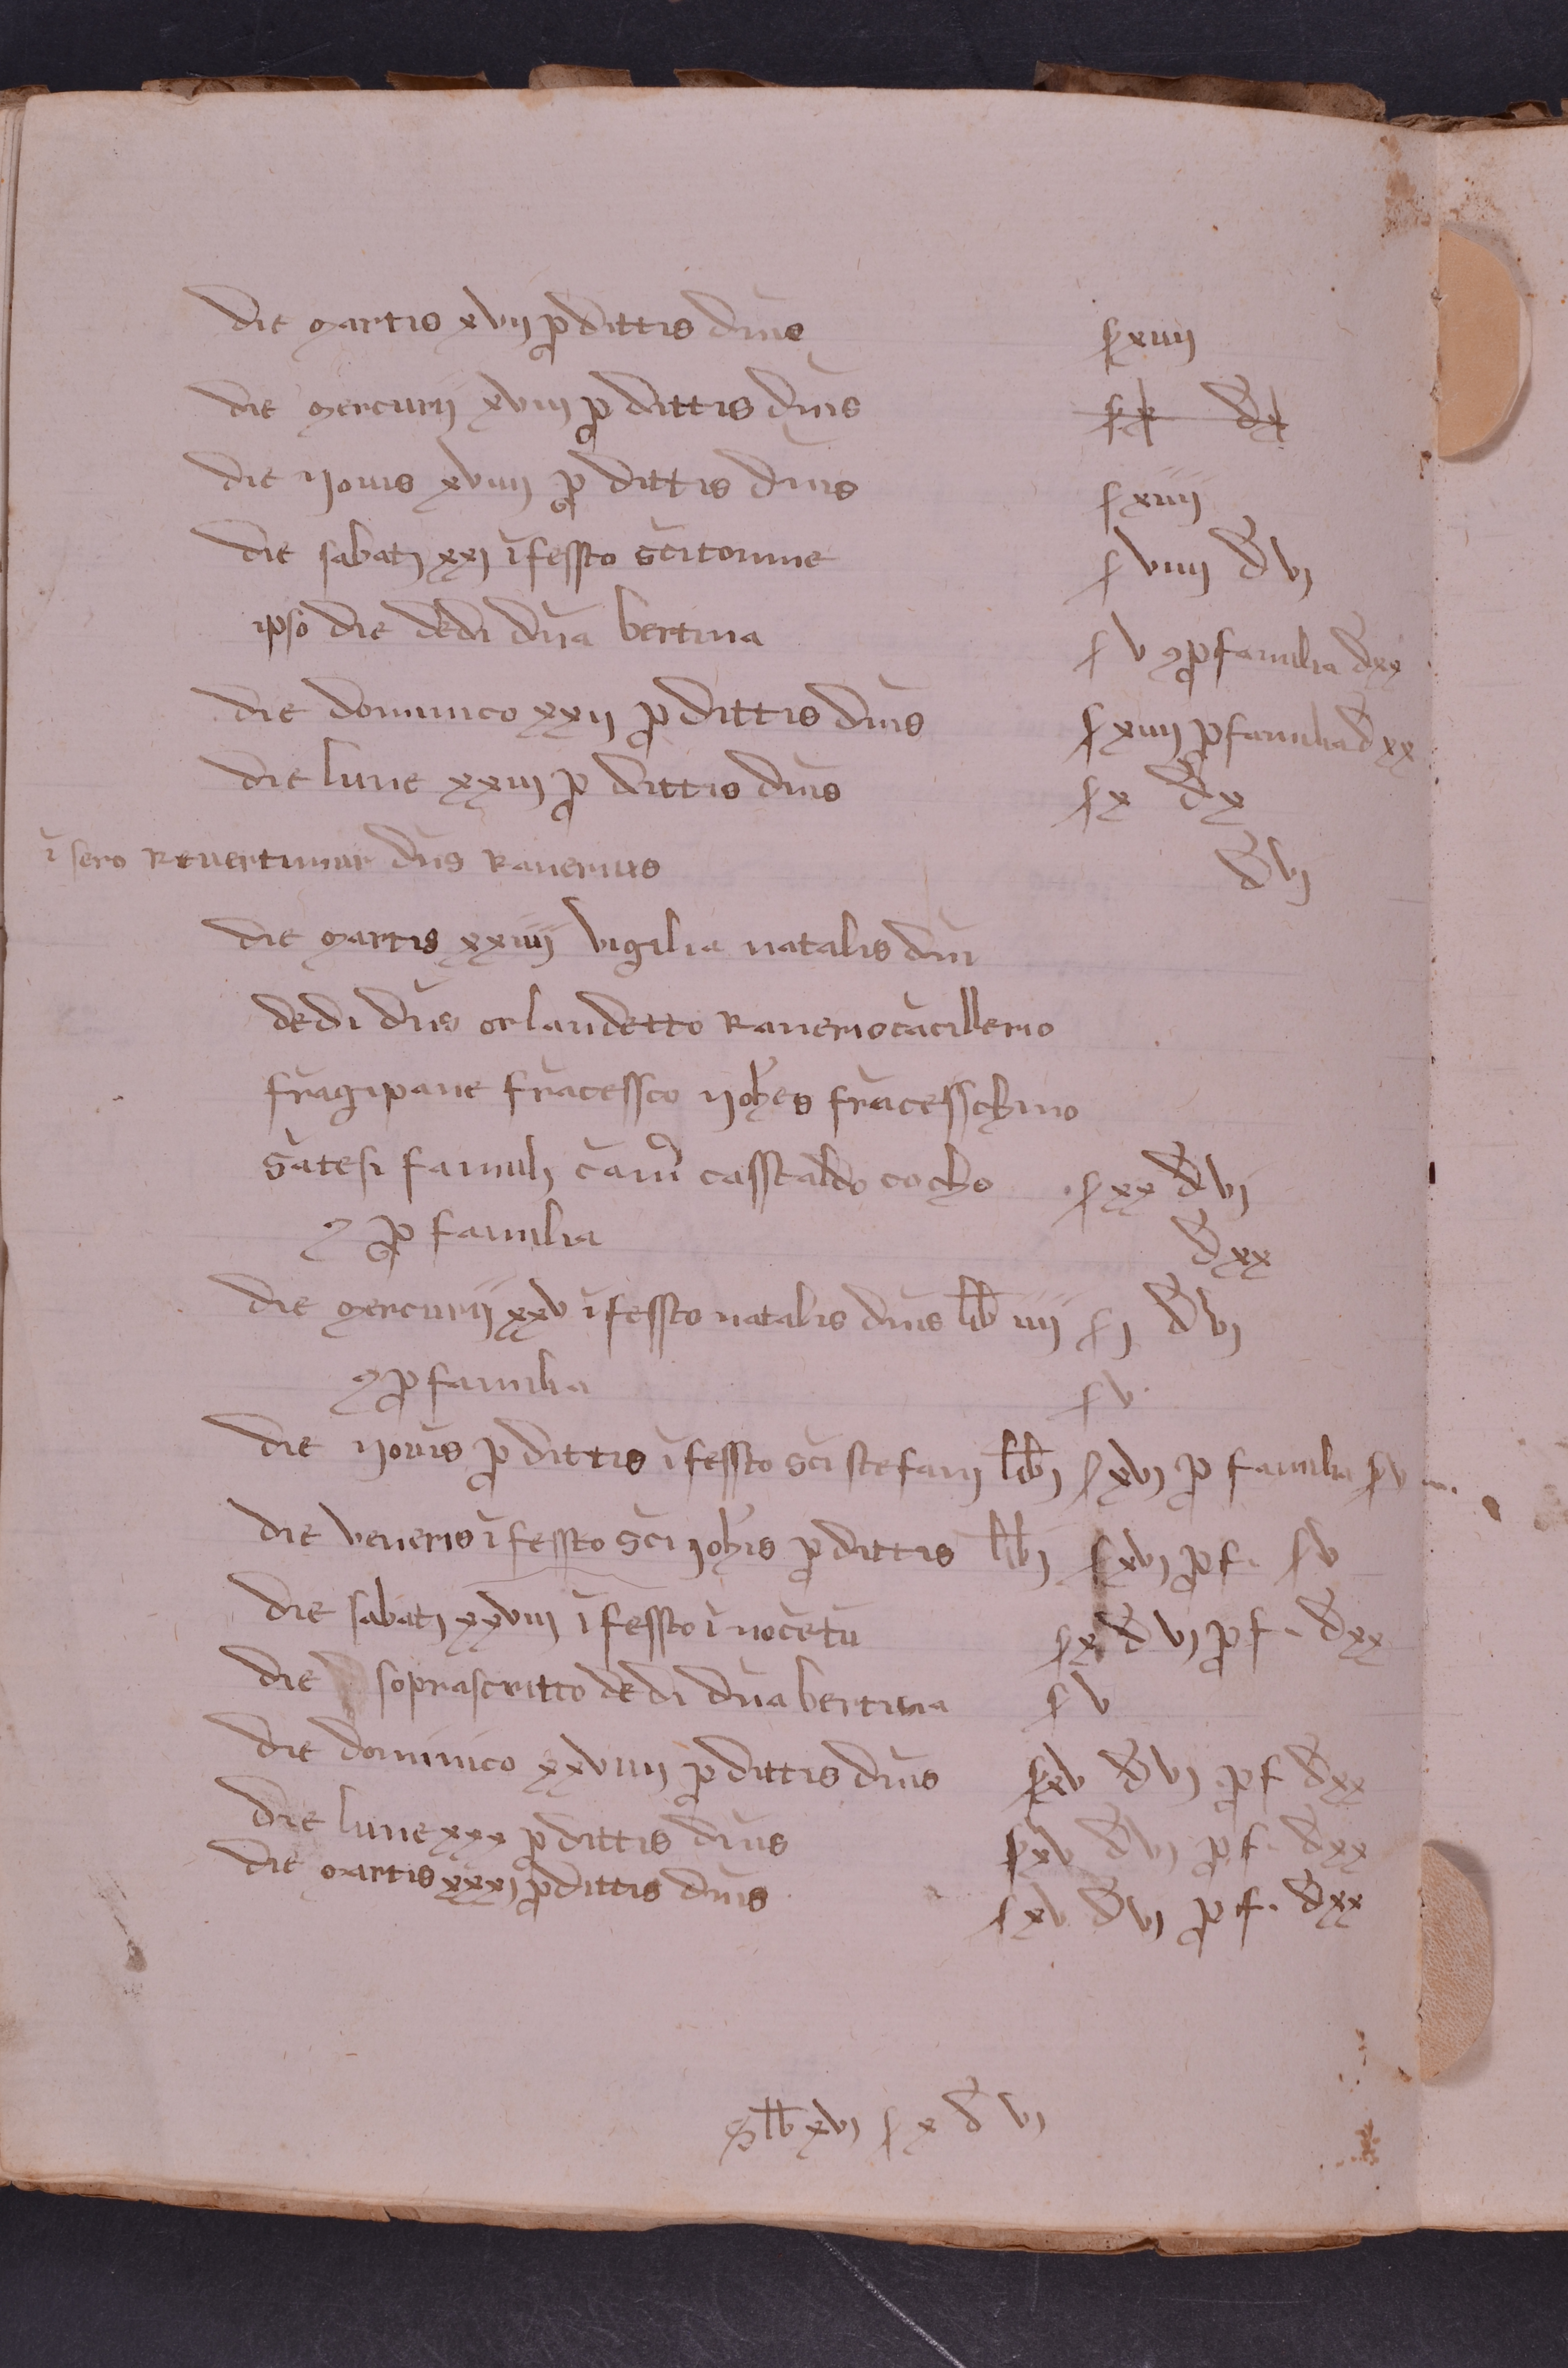 die martis xvij p dittis dnis s xiiij
die mercurij xviij p dittis dnis s x d x
die jovis xviiij p dittis dnis s xiiij
die sabatj xxj ĩ fessto sc̃i tomme s viiij d vj
ipso die dedi dña bertina s v 7 p familia d xx
die dominico xxij p dittis dnis s xiiij p familia d xx
die lune xxiij p dittis dnis s x d x
ĩ sero Revertimur dñs Ranerius d vj
die martis xxiiij vigilia natalis dñi
dedi dñs orlandetto Ranerio cãcillerio
frãgipane frãcessco johẽs frãcesschino
sãtesi famulj cam̃ casstaldo cocho s xx d vj
7 p familia d xx
die mercurij xxv ĩ fessto natalis dnis lib iiij s j d vj
7 p familia s v
die jovis p dittis ĩ fessto sc̃i stefanj lib j s xvj p familia s v
die veneris ĩ fessto sc̃i johĩs p dittis lib j s xvj p f. s v
die sabatj xxviij ĩ fessto ĩnocẽtũ s x d vj p f. d xx
die soprascritto dedi dña bertina s v
die dominico xxviiij p dittis dnis s xv d vj p f d xx
die lune xxx p dittis dnis s xv d vj p f. d xx
die martis xxxj p dittis dnis s xv d vj p f. d xx
S lb xvj s x d vj